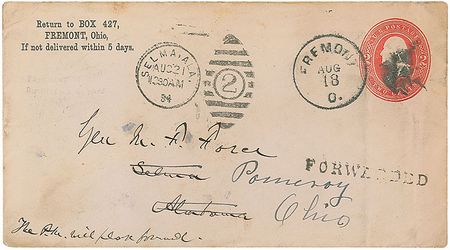 Return to BOX 427,
FREMONT, Ohio,
If not delivered within 5 days.
SELMA, ALA.
AUG 21
1230AM
84
2
FREMONT
AUG
18
O.
U.S. POSTAGE
Gen M F Force
Selma Pomeroy
Alabama Ohio
FORWARDED
The P.M. will please forward.